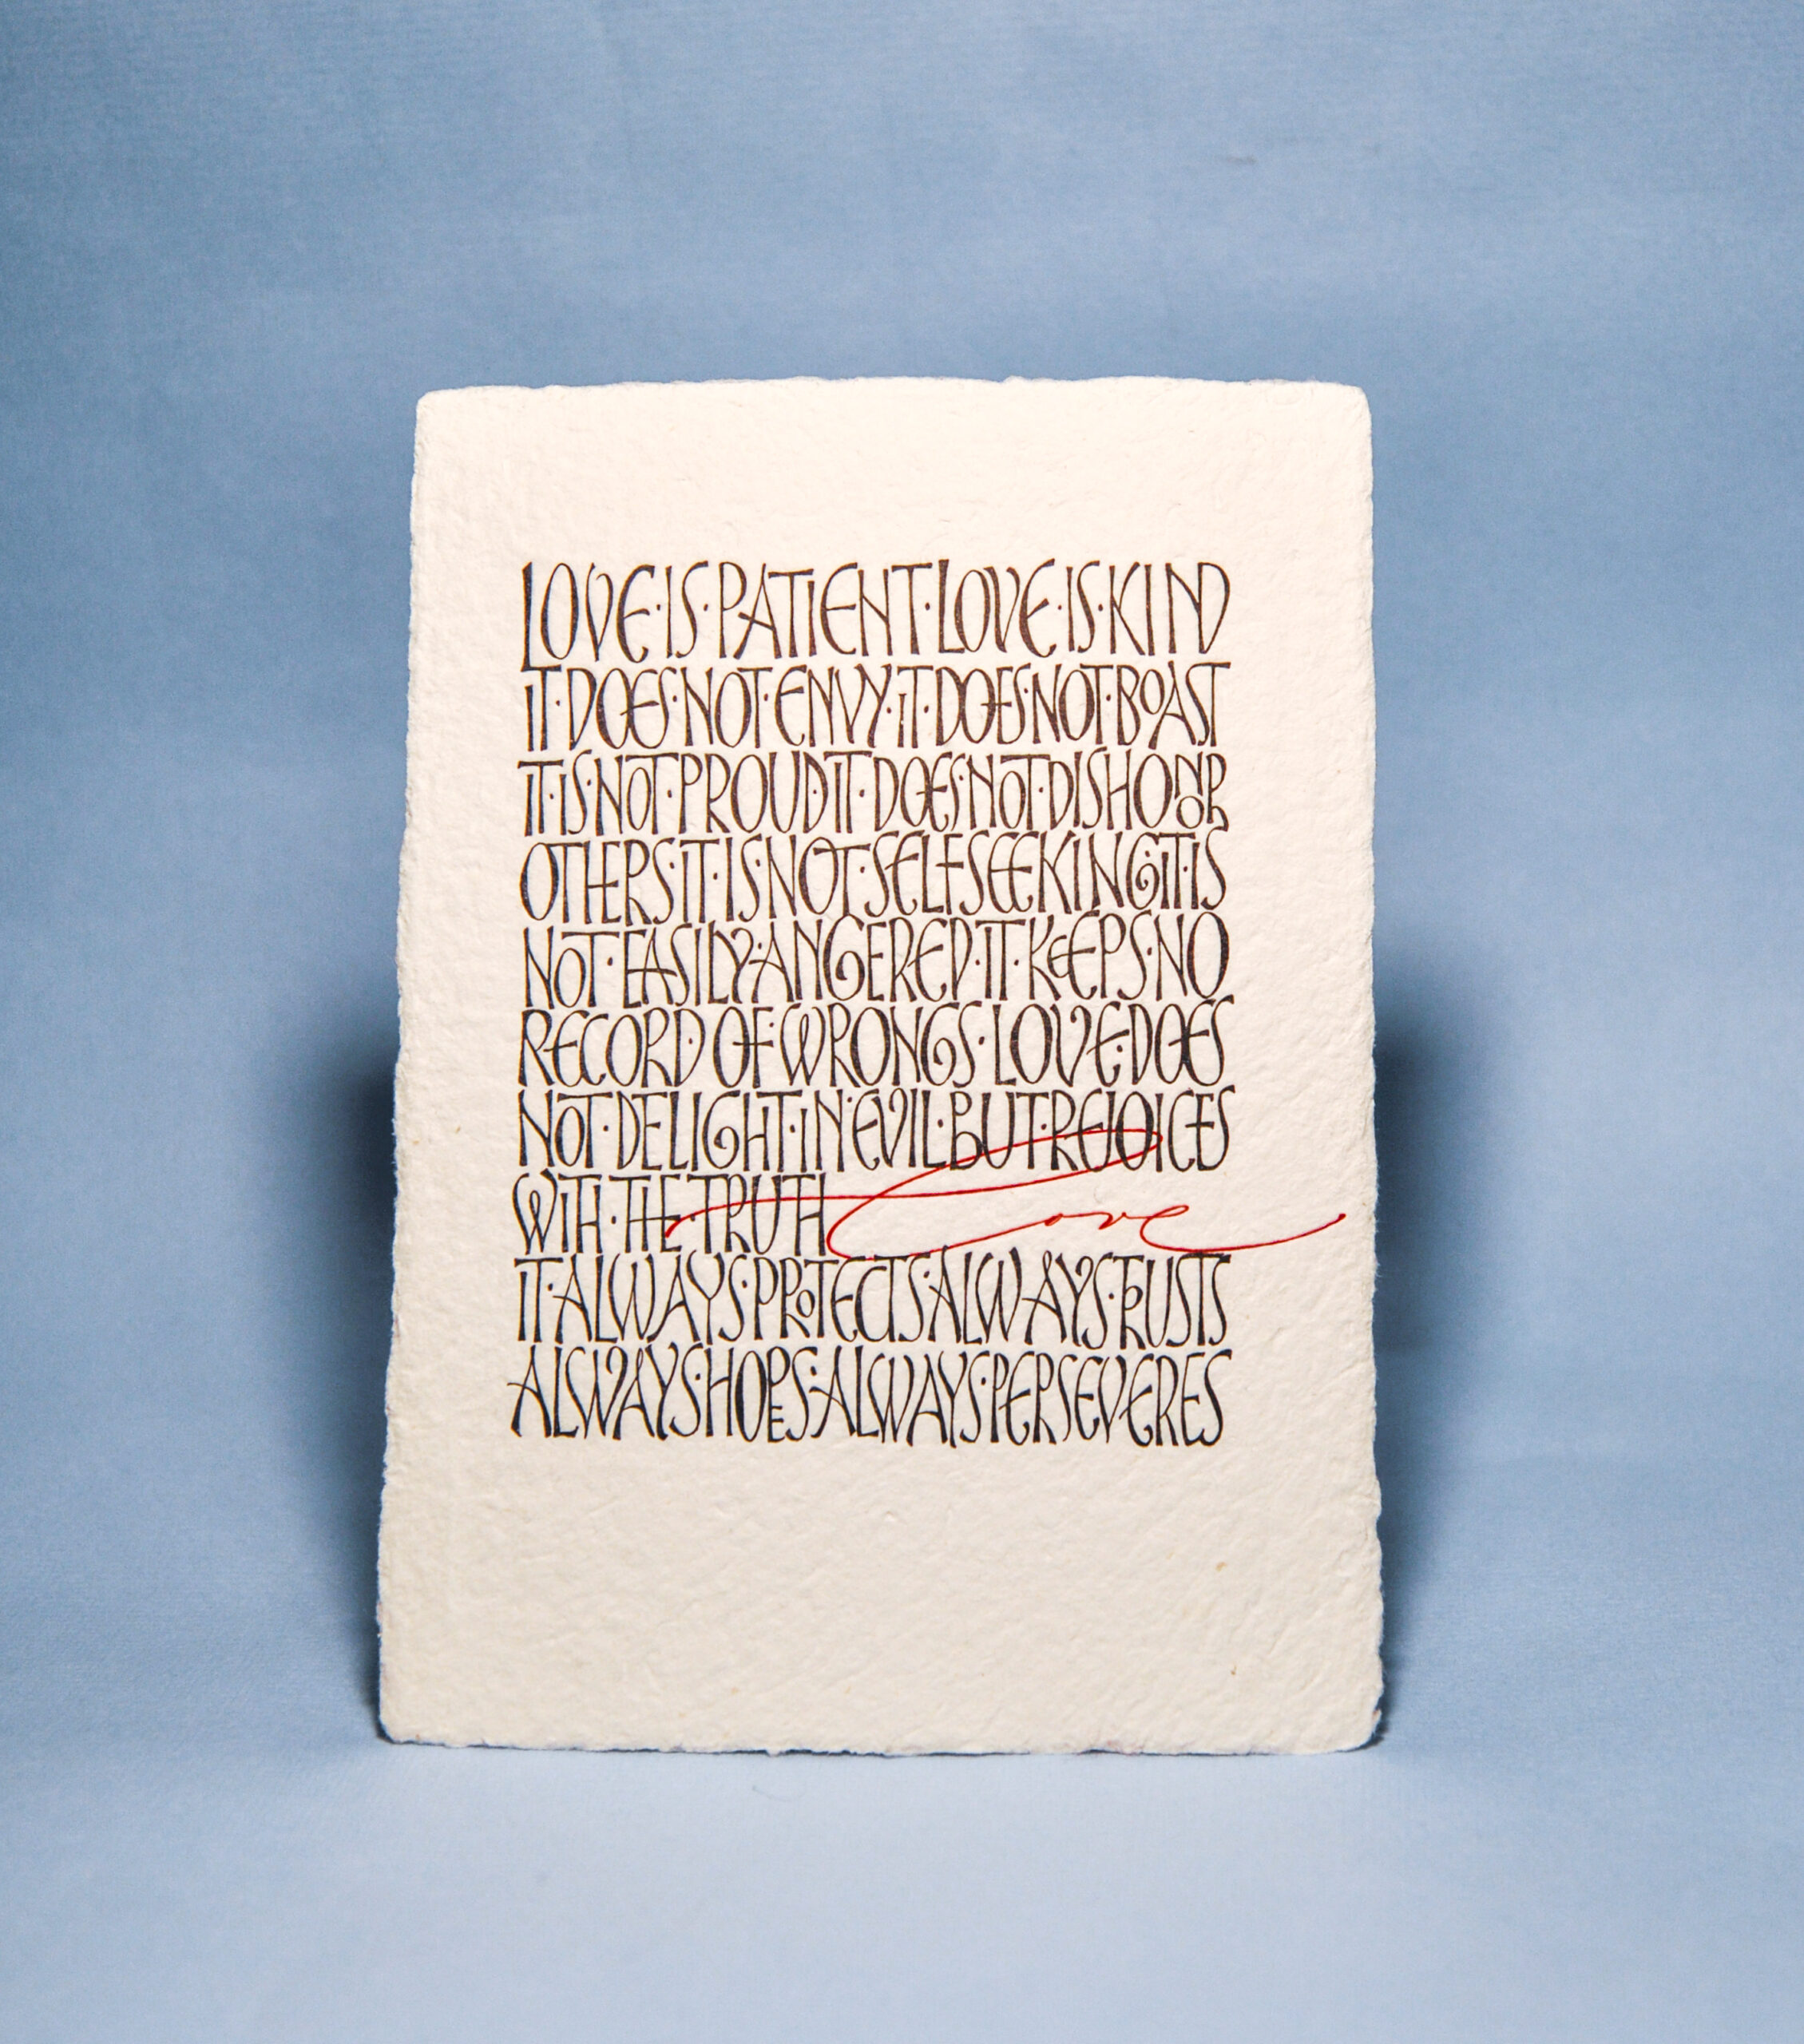 LOVE·IS·PATIENT·LOVE·IS·KIND
IT·DOES·NOT·ENVY·IT·DOES·NOT·BOAST
IT·IS·NOT·PROUD·IT·DOES·NOT·DISHONOR
OTHERS·IT·IS·NOT·SELFSEEKING·IT·IS
NOT·EASILY·ANGERED·IT·KEEPS·NO
RECORD·OF·WRONGS·LOVE·DOES
NOT·DELIGHT·IN·EVIL·BUT·REJOICES
WITH·THE·TRUTH Love
IT·ALWAYS·PROTECTS·ALWAYS·TRUSTS
ALWAYS·HOPES·ALWAYS·PERSEVERES